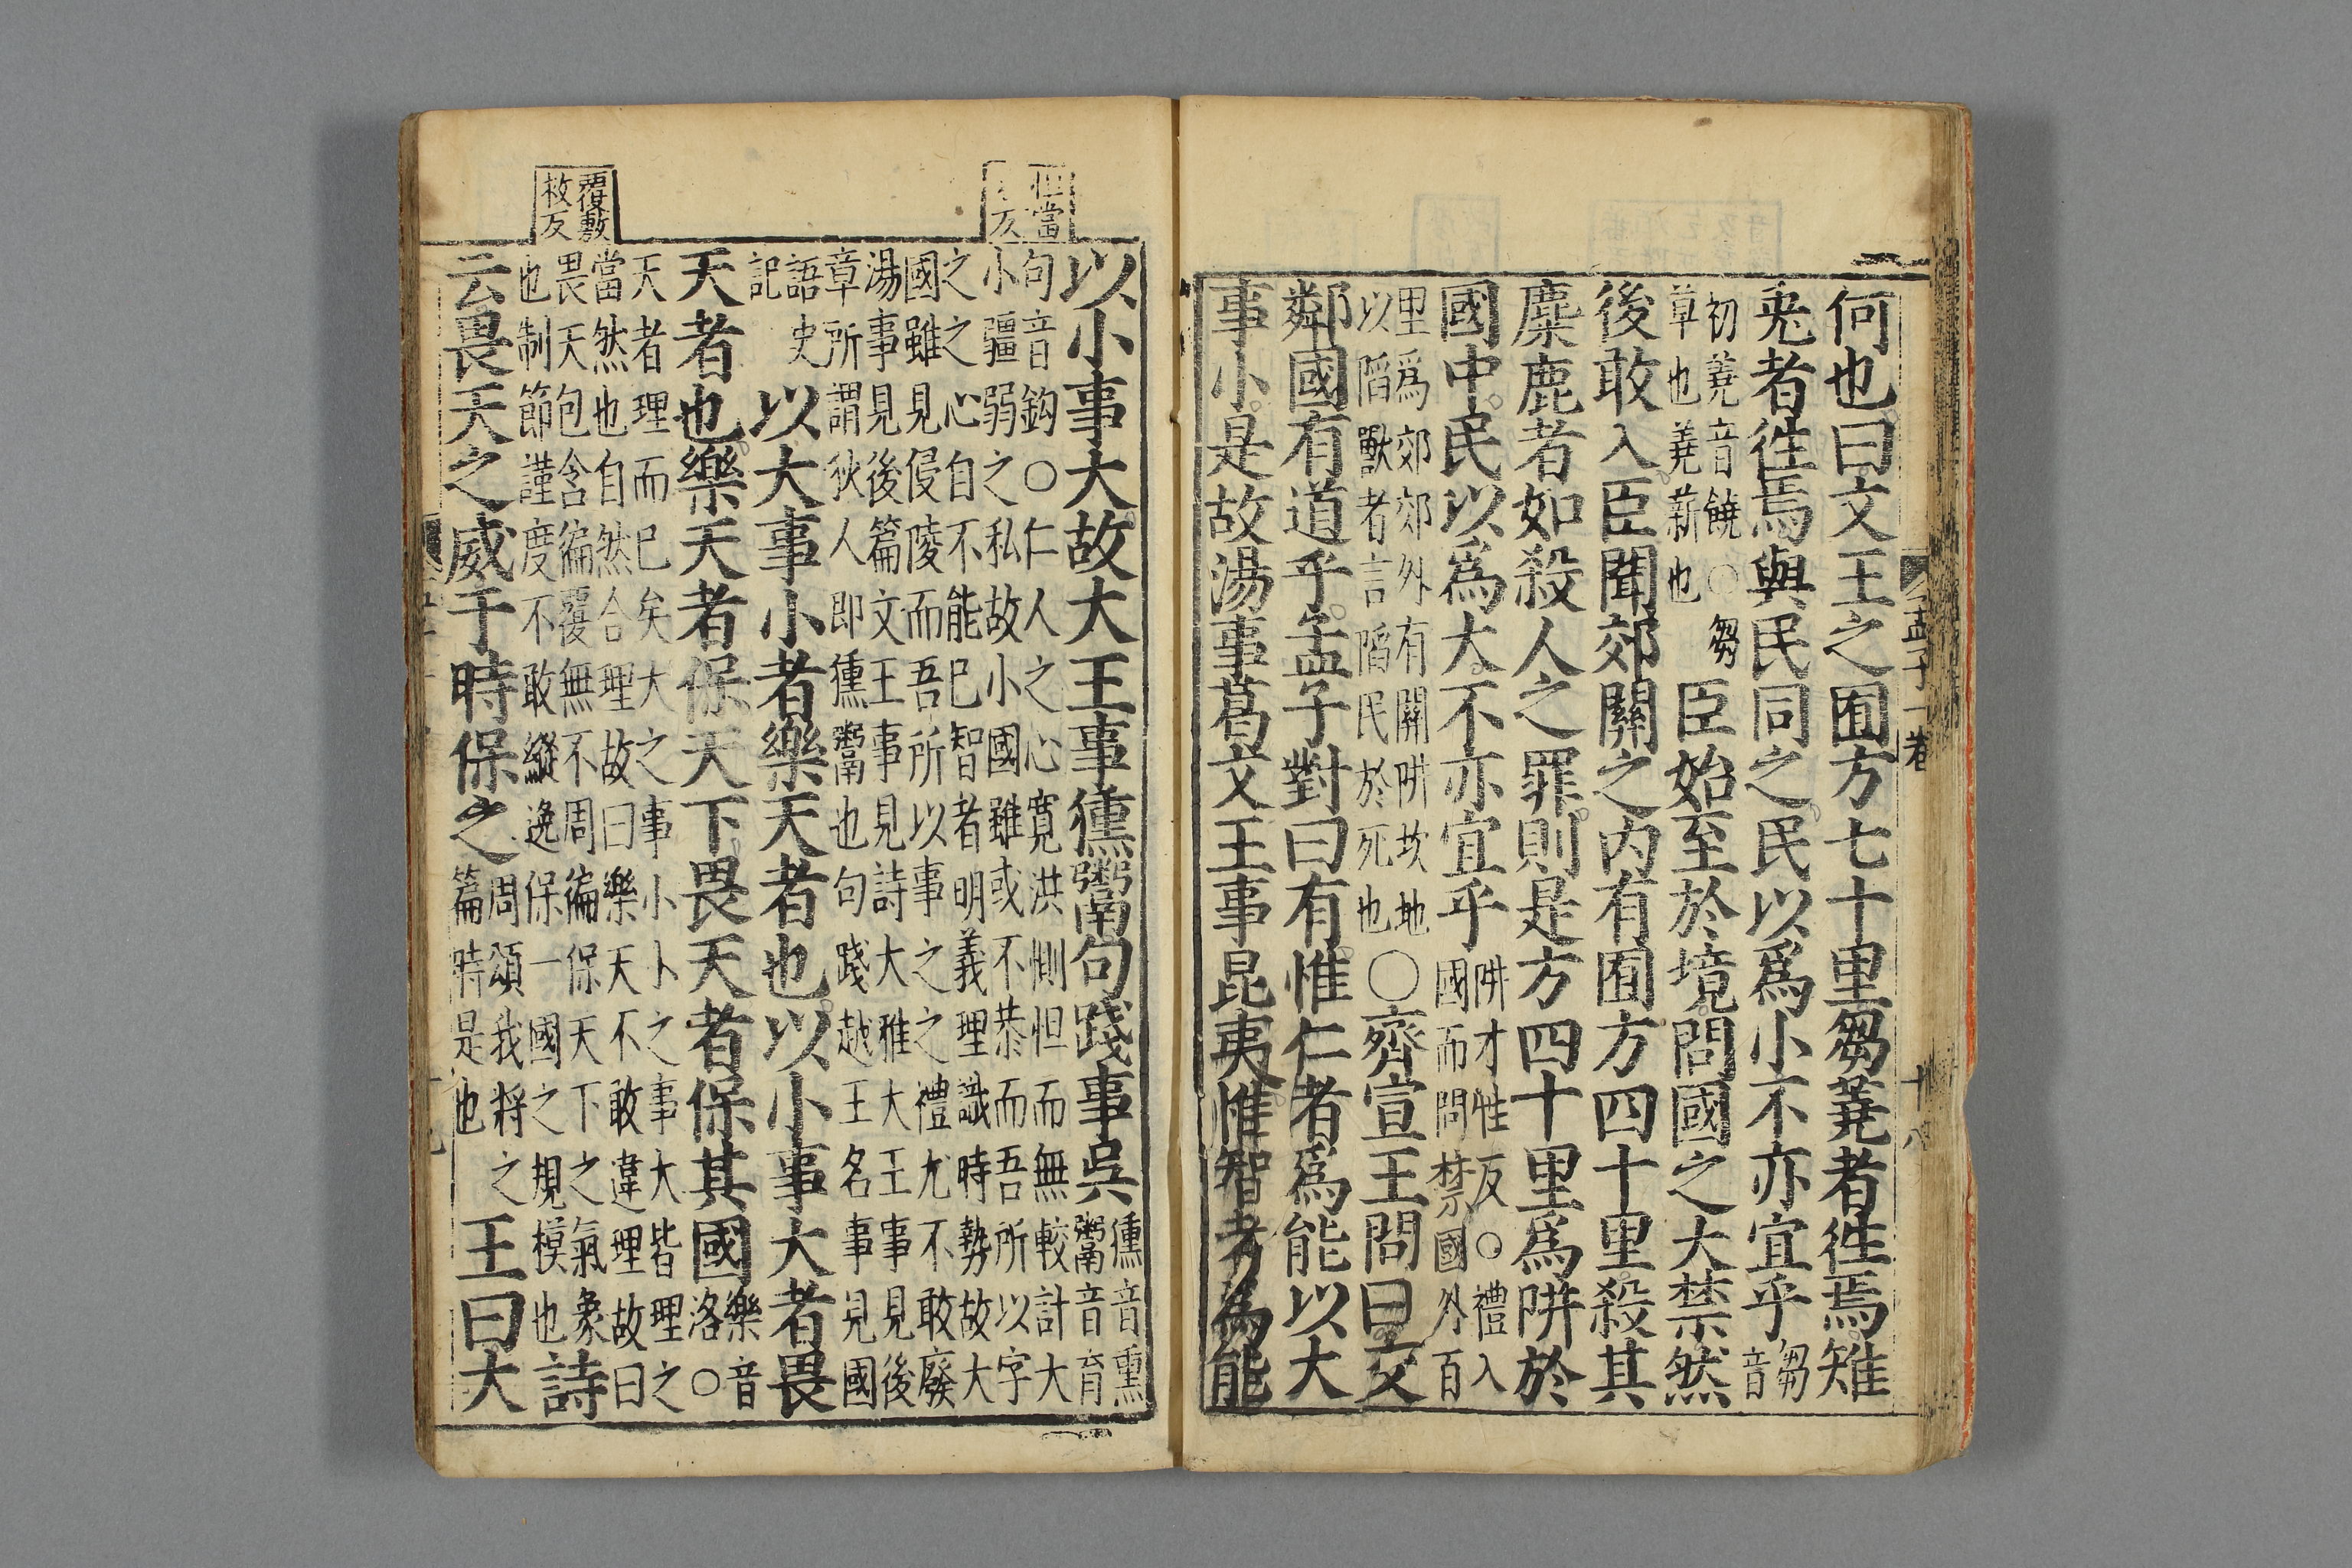 何也曰文王之囿方七十里芻蕘者徃焉雉
兎者徃焉與民同之民以爲小不亦宜乎芻音
初蕘音饒○芻
草也蕘薪也
臣始至於境問國之大禁然
後敢入臣聞郊關之内有囿方四十里殺其
麋鹿者如殺人之罪則是方四十里爲阱於
國中民以爲大不亦宜乎阱才性反○禮入
國而問禁國外百
里爲郊郊外有關阱坎地
以䧟獸者言䧟民於死也
○齊宣王問曰交
鄰國有道乎孟子對曰有惟仁者爲能以大
事小是故湯事葛文王事昆夷惟智者爲能
孟子一卷
十八
怛當
反
覆敷
救反
以小事大故大王事獯鬻句踐事吳獯音熏
鬻音育
句音鈎○仁人之心寛洪惻怛而無較計大
小彊弱之私故小國雖或不恭而吾所以字
之之心自不能已智者明義理識時勢故大
國雖見侵陵而吾所以事之之禮尤不敢廢
湯事見後篇文王事見詩大雅大王事見後
章所謂狄人即獯鬻也句踐越王名事見國
語史
記
以大事小者樂天者也以小事大者畏
天者也樂天者保天下畏天者保其國樂音
洛○
天者理而已矣大之事小小之事大皆理之
當然也自然合理故曰樂天不敢違理故曰
畏天包含徧覆無不周徧保天下之氣象
也制節謹度不敢縱逸保一國之規模也
詩
云畏天之威于時保之周頌我將之
篇時是也
王曰大